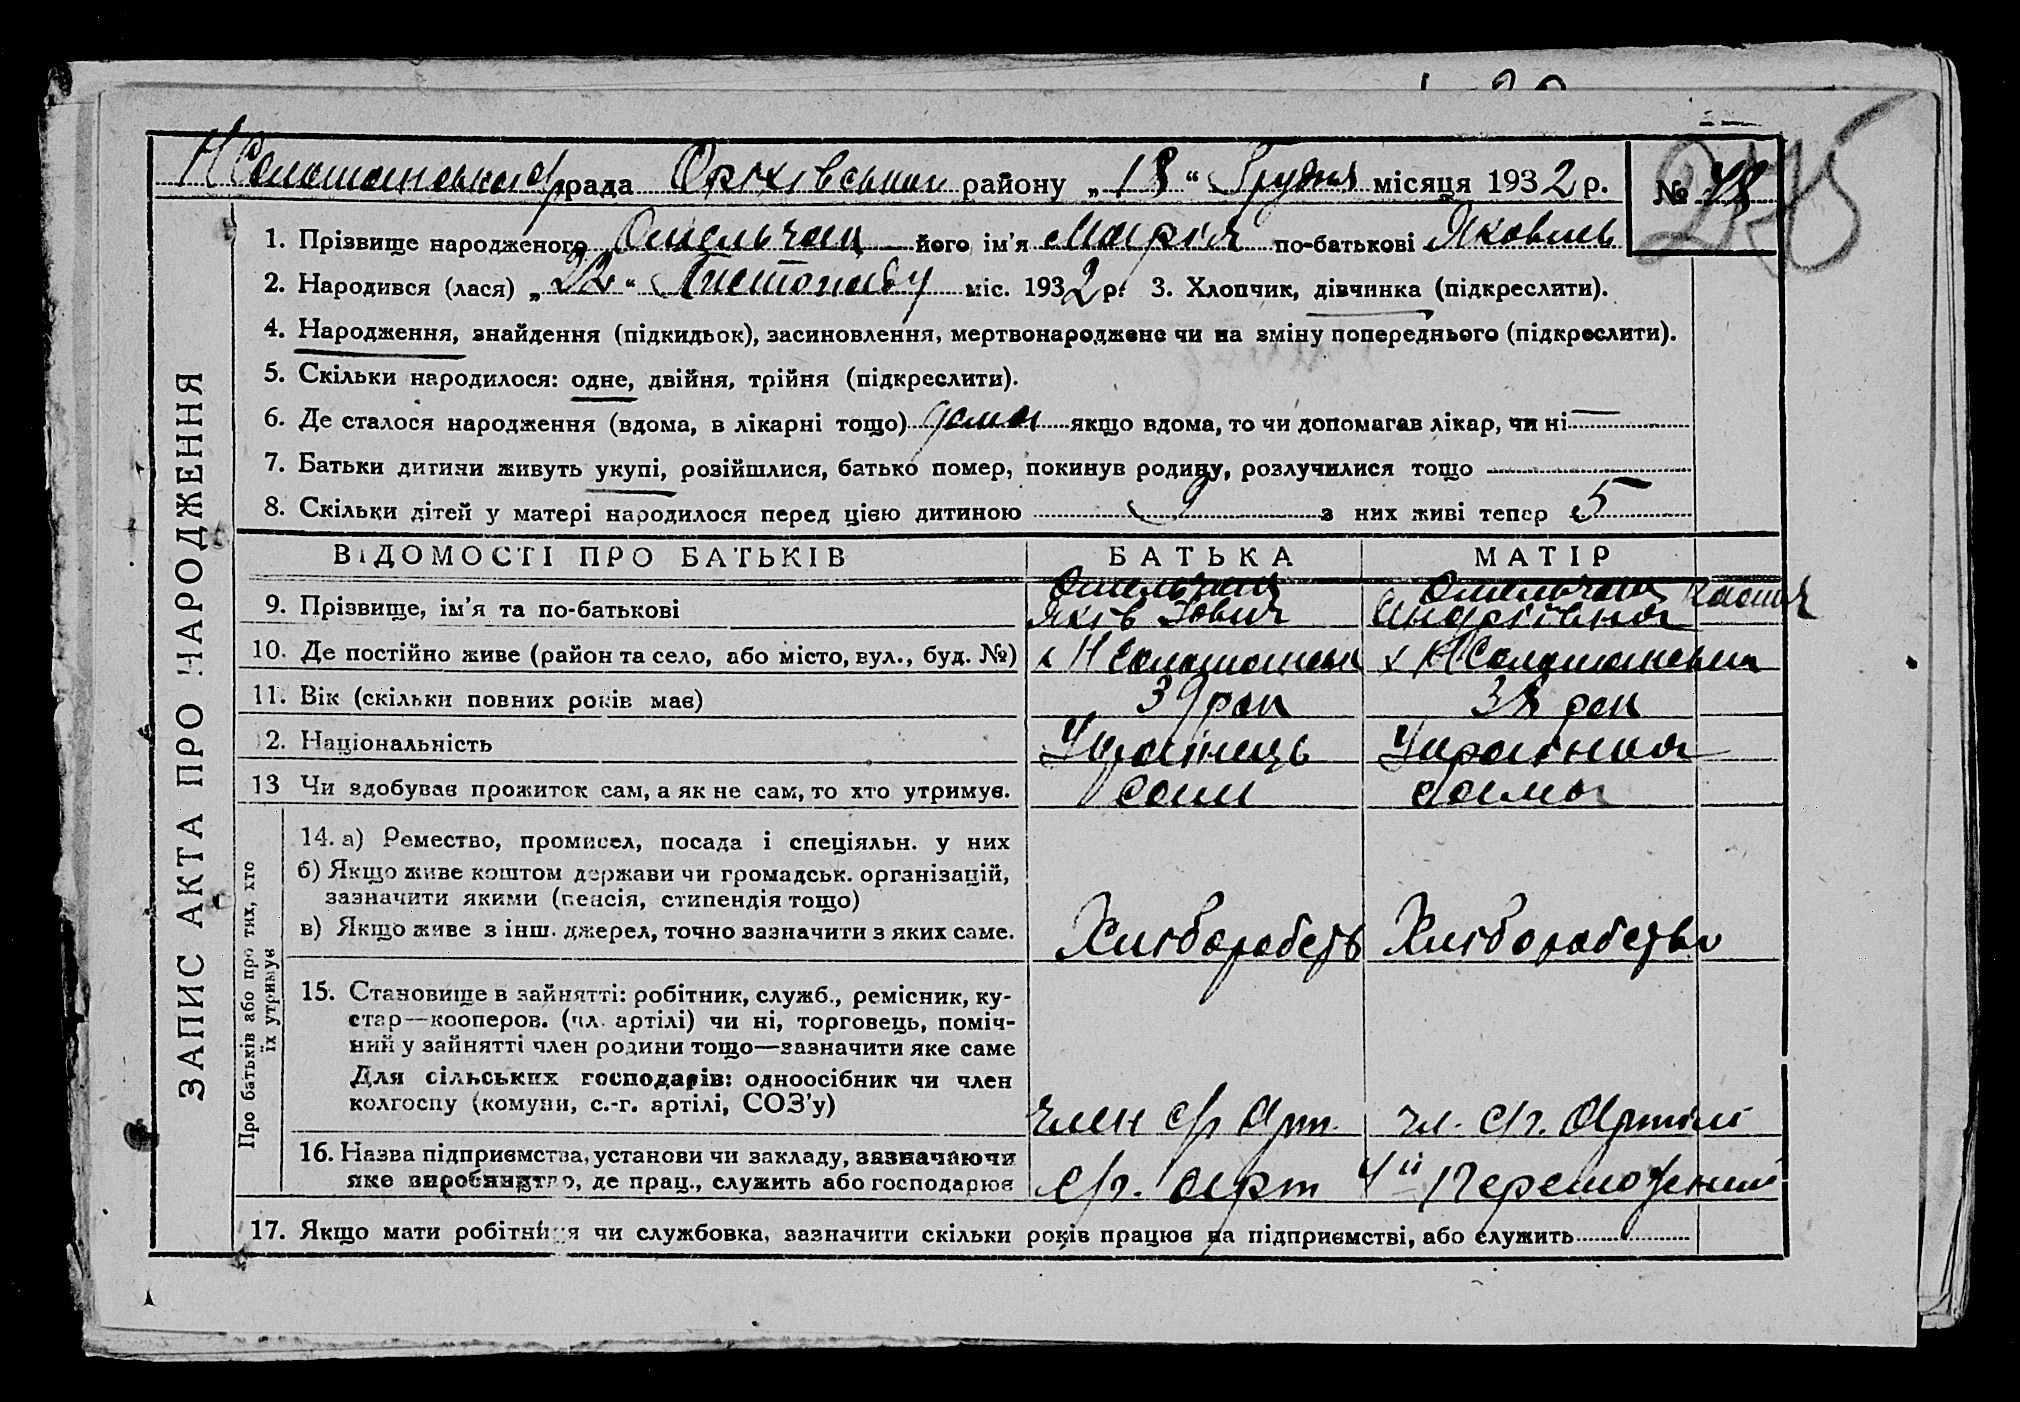 рада Оріхівський району „18“ Грудня місяця 1932 р. № 48
1. Прізвище народженого Омельчац його ім’я Марія по-батькові Яковль
2. Народився (лася) „22“ Листопаду міс. 1932 р. 3. Хлопчик, дівчинка (підкреслити).
4. Народження, знайдення (підкидьок), засиновлення, мертвонароджене чи на зміну попереднього (підкреслити).
5. Скільки народилося: одне, двійня, трійня (підкреслити).
6. Де сталося народження (вдома, в лікарні тощо) дома якщо вдома, то чи допомагав лікар, чи ні —
7. Батьки дитини живуть укупі, розійшлися, батько помер, покинув родину, розлучилися тощо
8. Скільки дітей у матері народилося перед цією дитиною з них живі тепер 5
ЗАПИС АКТА ПРО НАРОДЖЕННЯ
ВІДОМОСТІ ПРО БАТЬКІВ БАТЬКА МАТІР
9. Прізвище, ім’я та по-батькові
Яків Андріївна
10. Де постійно живе (район та село, або місто, вул., буд. №)
11. Вік (скільки повних років має) 39 рок 38 рок
12. Національність Українець Українка
13 Чи здобував прожиток сам, а як не сам, то хто утримує. сам сама
Про батьків або про тих, хто
їх утримує
14. а) Ремество, промисел, посада і спеціяльн. у них
б) Якщо живе коштом держави чи громадськ. організацій,
зазначити якими (пенсія, стипендія тощо)
в) Якщо живе з інш. джерел, точно зазначити з яких саме. Хліборобств Хліборобство
15. Становище в зайнятті: робітник, служб., ремісник, ку-
стар—кооперов. (чл. артілі) чи ні, торговець, поміч-
ний у зайнятті член родини тощо—зазначити яке саме
Для сільських господарів: одноосібник чи член
колгоспу (комуни, с.-г. артілі, СОЗ’у) член с/г Арт. чл. с/г. Артілі
16. Назва підприємства, установи чи закладу, зазначаючи
яке виробництво, де прац., служить або господарює с/г. Арт Переможний
17. Якщо мати робітниця чи службовка, зазначити скільки років працює на підприємстві, або служить